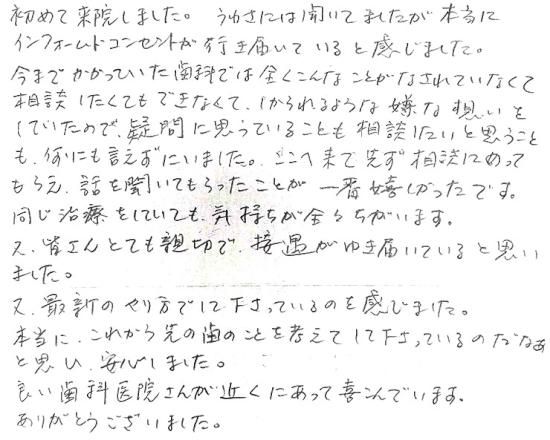 初めて来院しました。 うわさには聞いてましたが本当に
インフォームドコンセントが行き届いていると感じました。
今までかかっていた歯科では全くこんなことがなされていなくて
相談したくてもできなくて、しかられるような嫌な想いを
していたので、疑問に思うていることも相談したいと思うこと
も、何にも言えずにいました。ここへ来て先ず相談にのって
もらえ、話を聞いてもらったことが一番嬉しかったです。
同じ治療をしていても、気持ちが全々ちがいます。
又、皆さんとても親切で、接遇がゆき届いていると思い
ました。
又、最新のやり方でして下さっているのを感じました。
本当に、これから先の歯のことを考えてして下さっているのだなあ
と思い、安心しました。
良い歯科医院さんが近くにあって喜こんでいます。
ありがとうございました。